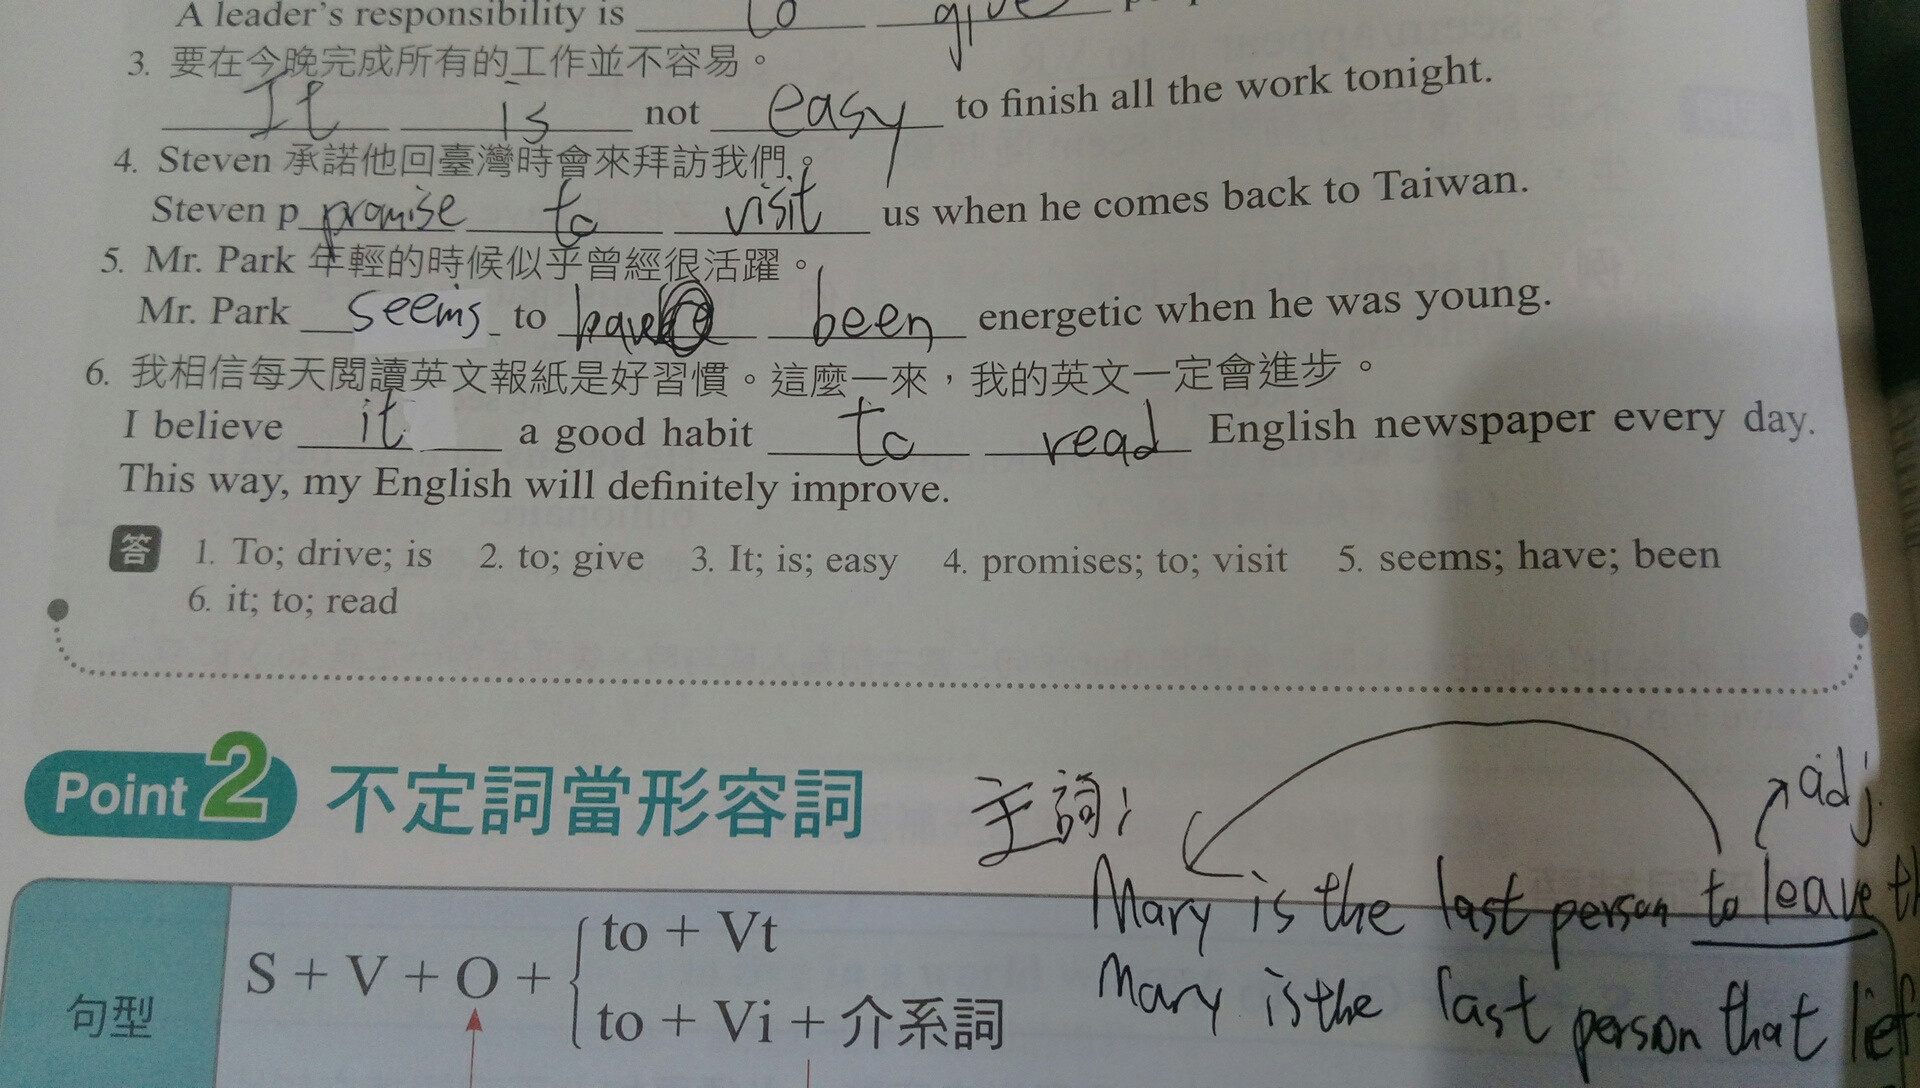 A leader's responsibility is to give
3. 要在今晚完成所有的工作並不容易。
It is not easy to finish all the work tonight.
4. Steven 承諾他回臺灣時會來拜訪我們。
Steven p promise to visit us when he comes back to Taiwan.
5. Mr. Park 年輕的時候似乎曾經很活躍。
Mr. Park seems to have been energetic when he was young.
6. 我相信每天閱讀英文報紙是好習慣。這麼一來,我的英文一定會進步。
I believe it a good habit to read English newspaper every day.
This way, my English will definitely improve.
答 1. To; drive; is 2. to; give 3. It; is; easy 4. promises; to; visit 5. seems; have; been
6. it; to; read
Point 2 不定詞當形容詞
主詞:
adj.
Mary is the last person to leave
Mary is the last person that
句型
S + V + O +
to + Vt
to + Vi + 介系詞